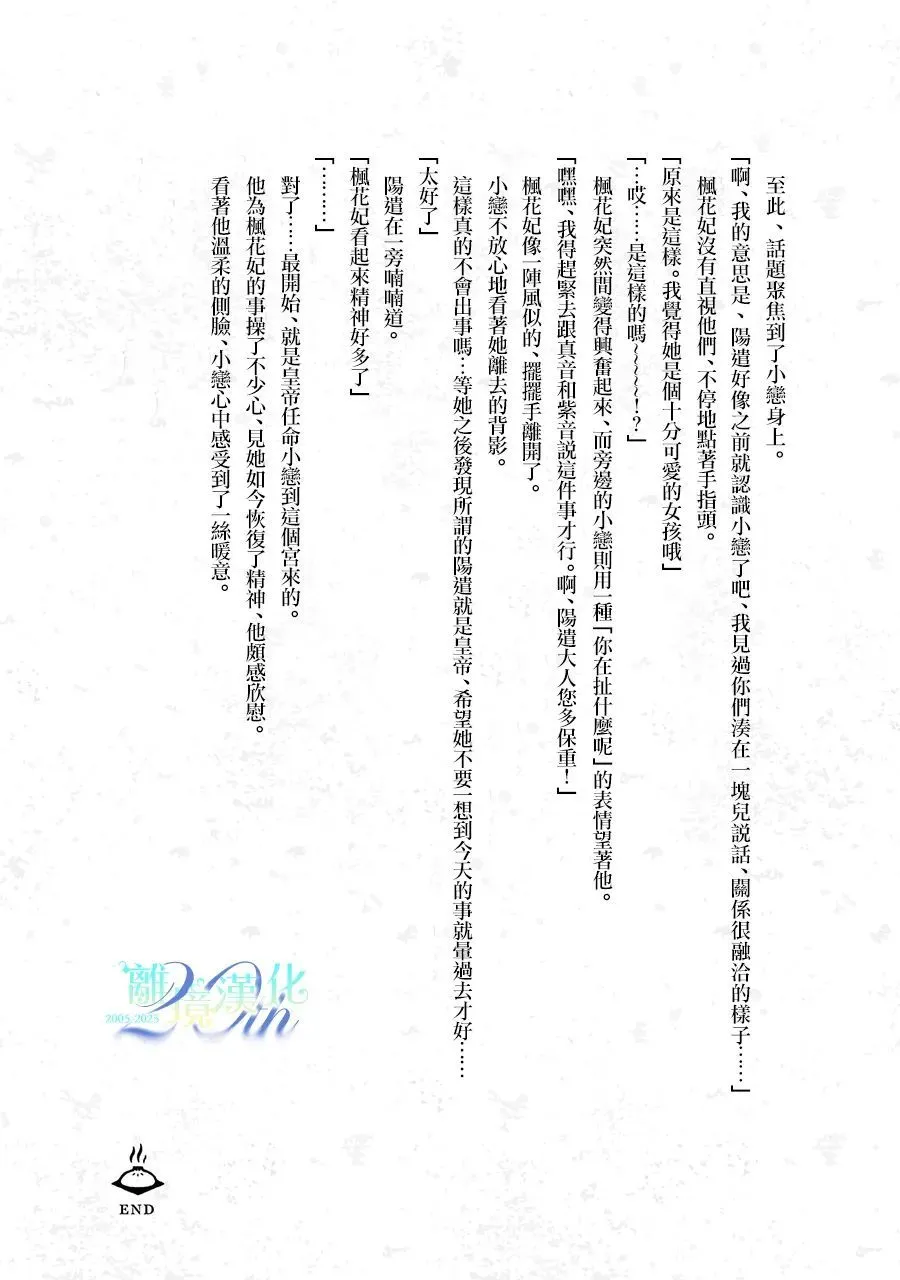 至此、話題聚焦到了小戀身上。
「啊、我的意思是、陽遣好像之前就認識小戀了吧、我見過你們湊在一塊兒說話、關係很融洽的樣子……」
楓花妃沒有直視他們、不停地點著手指頭。
「原來是這樣。我覺得她是個十分可愛的女孩哦」
「…哎……是這樣的嗎～～～～!?」
楓花妃突然間變得興奮起來、而旁邊的小戀則用一種「你在扯什麼呢」的表情望著他。
「嘿嘿、我得趕緊去跟真音和紫音說這件事才行。啊、陽遣大人您多保重！」
楓花妃像一陣風似的、擺擺手離開了。
小戀不放心地看著她離去的背影。
這樣真的不會出事嗎…等她之後發現所謂的陽遣就是皇帝、希望她不要一想到今天的事就暈過去才好……
「太好了」
陽遣在一旁喃喃道。
「楓花妃看起來精神好多了」
「………」
對了……最開始、就是皇帝任命小戀到這個宮來的。
他為楓花妃的事操了不少心、見她如今恢復了精神、他頗感欣慰。
看著他溫柔的側臉、小戀心中感受到了一絲暖意。
離境漢化
20th
2005-2025
END